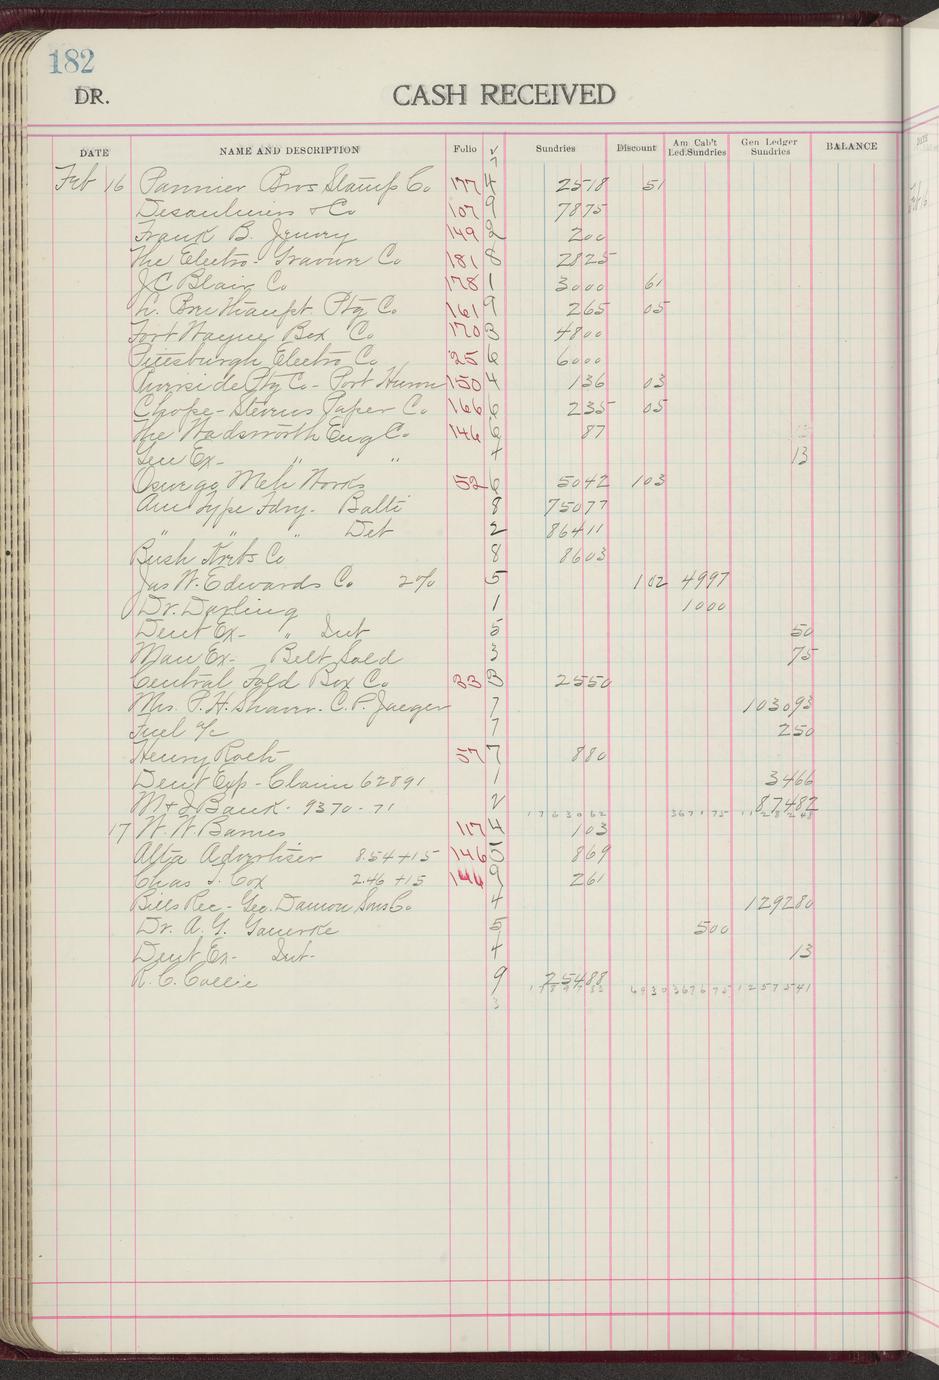 182
DR.
CASH RECEIVED
DATE NAME AND DESCRIPTION Folio √ Sundries Discount Am Cab't Led.Sundries Gen Ledger Sundries BALANCE
7
Feb 16 Pannier Bros Stamp Co 177 4 2518 51
Desaulniers & Co 107 9 7875
Frank B. Jenvey 149 2 200
The Electro-Gravure Co 181 8 2825
J C Blair Co 178 1 3000 61
L. Breithaupt Ptg Co. 161 9 265 05
Fort Wayne Box Co 170 3 4800
Pittsburgh Electro Co 25 6 6000
Riverside Ptg Co - Port Huron 150 4 136 03
Chope-Stevens Paper Co 166 6 235 05
The Wadsworth Eng Co. 146 6 87
Gen Ex- " " 4 13
Oswego Meh Works 52 6 5042 103
Am Type Fdry. Balti 8 75077
" " " Det 2 86411
Bush Krebs Co 8 8603
Jas W. Edwards Co 2% 5 102 4997
Dr. Darling 1 1000
Dent Ex- " Int 5 50
Man Ex- Belt Sold 3 75
Central Fold Box Co 33 3 2550
Mrs. P. H. Shaver. C. P. Jaeger 7 103093
Fuel a/c 7 250
Henry Roeh 57 7 880
Dent Exp - Claim 62891 1 3466
M & I Bank. 9370-71 2 87482
1763062 367175 1128248
17 W. W. Barnes 117 4 103
Alta Advertiser 8.54+15 146 5 869
Chas T. Cox 2.46+15 146 9 261
Bills Rec - Geo. Damon Sons Co. 4 129280
Dr. A. G. 5 500
Dent Ex- Int- 4 13
R. C. Collie 9 25488
6930 367675 1257541
3